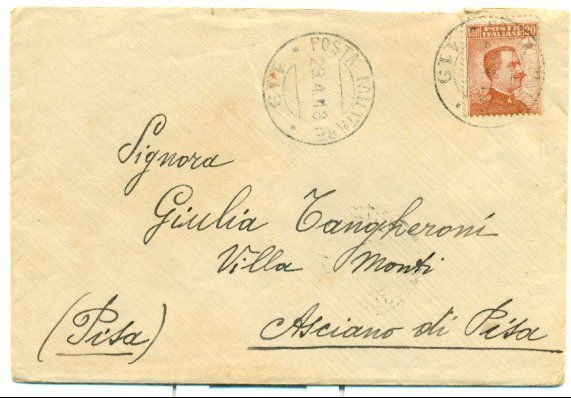 POSTA MILITARE
29.4.18
POSTE ITALIANE
20
Signora
Giulia Tangheroni
Villa Monti
(Pisa) Asciano di Pisa